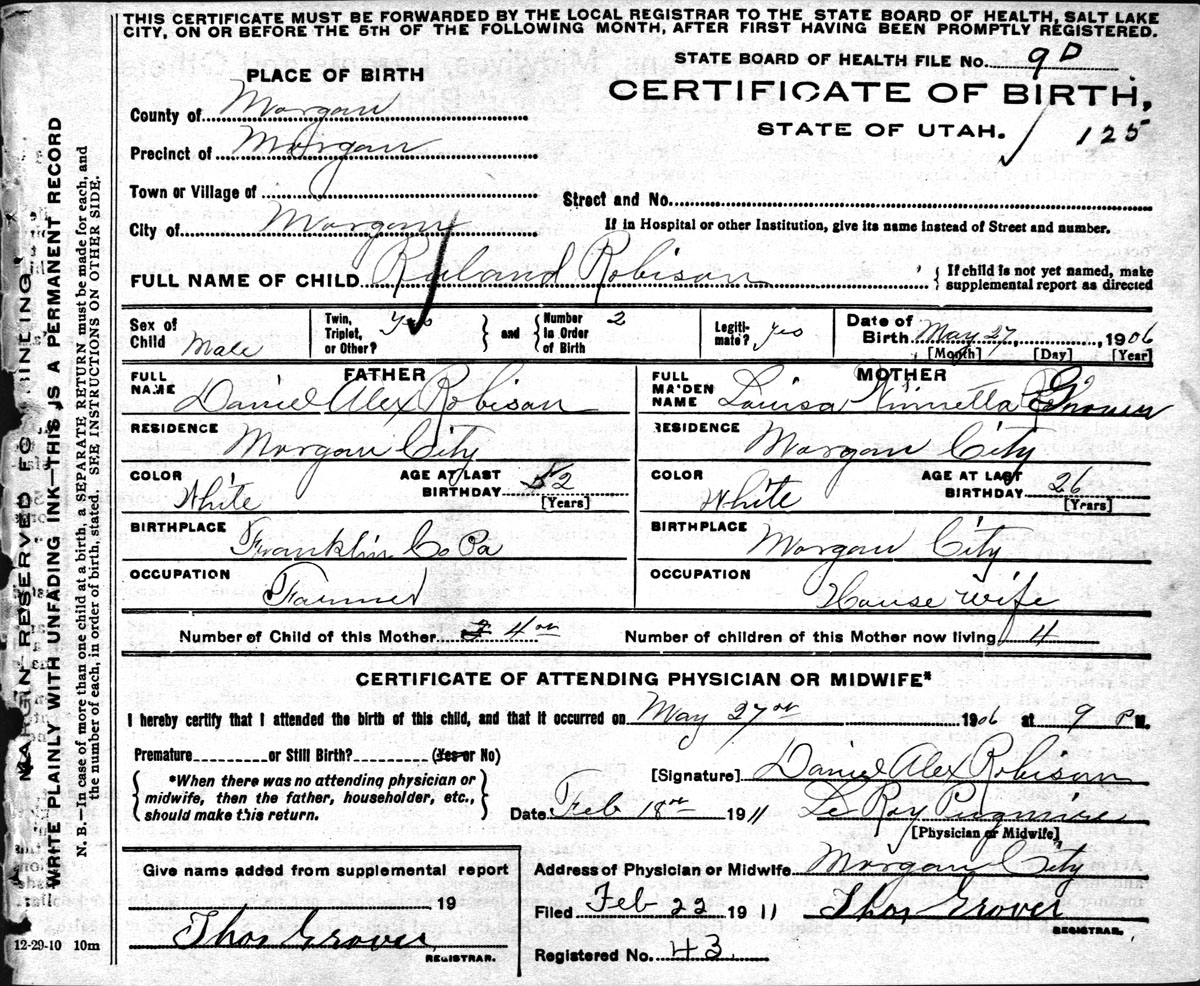 THIS CERTIFICATE MUST BE FORWARDED BY THE LOCAL REGISTRAR TO THE STATE BOARD OF HEALTH, SALT LAKE
CITY, ON OR BEFORE THE 5TH OF THE FOLLOWING MONTH, AFTER FIRST HAVING BEEN PROMPTLY REGISTERED.
STATE BOARD OF HEALTH FILE No. 9D
PLACE OF BIRTH
CERTIFICATE OF BIRTH,
STATE OF UTAH. 125
County of Morgan
Precinct of Morgan
Town or Village of
Street and No.
City of Morgan
If in Hospital or other Institution, give its name instead of Street and number.
FULL NAME OF CHILD Ruland Robison
{ If child is not yet named, make
supplemental report as directed
Sex of Child Male
Twin, Triplet, or Other? Yes
and
Number in Order of Birth 2
Legitimate? yes
Date of Birth May 27, 1906
[Month] [Day] [Year]
FATHER
FULL NAME Daniel Alex Robison
MOTHER
FULL MAIDEN NAME Louisa Grover
RESIDENCE Morgan City
RESIDENCE Morgan City
COLOR White
AGE AT LAST BIRTHDAY 52 [Years]
COLOR White
AGE AT LAST BIRTHDAY 26 [Years]
BIRTHPLACE Franklin Co Pa
BIRTHPLACE Morgan City
OCCUPATION Farmer
OCCUPATION House wife
Number of Child of this Mother 4
Number of children of this Mother now living 4
CERTIFICATE OF ATTENDING PHYSICIAN OR MIDWIFE*
I hereby certify that I attended the birth of this child, and that it occurred on May 27 1906 at 9 P M.
Premature or Still Birth? (Yes or No)
*When there was no attending physician or
midwife, then the father, householder, etc.,
should make this return.
[Signature] Daniel Alex Robison
Date: Feb 18 1911
Le Roy Pugmire
[Physician or Midwife]
Give name added from supplemental report
19
Thos Grover
REGISTRAR.
Address of Physician or Midwife Morgan City
Filed Feb 22 1911 Thos Grover
REGISTRAR.
Registered No. 43
12-29-10 10m
MARGIN RESERVED FOR BINDING.
WRITE PLAINLY WITH UNFADING INK—THIS IS A PERMANENT RECORD
N. B.—In case of more than one child at a birth, a SEPARATE RETURN must be made for each, and
the number of each, in order of birth, stated. SEE INSTRUCTIONS ON OTHER SIDE.